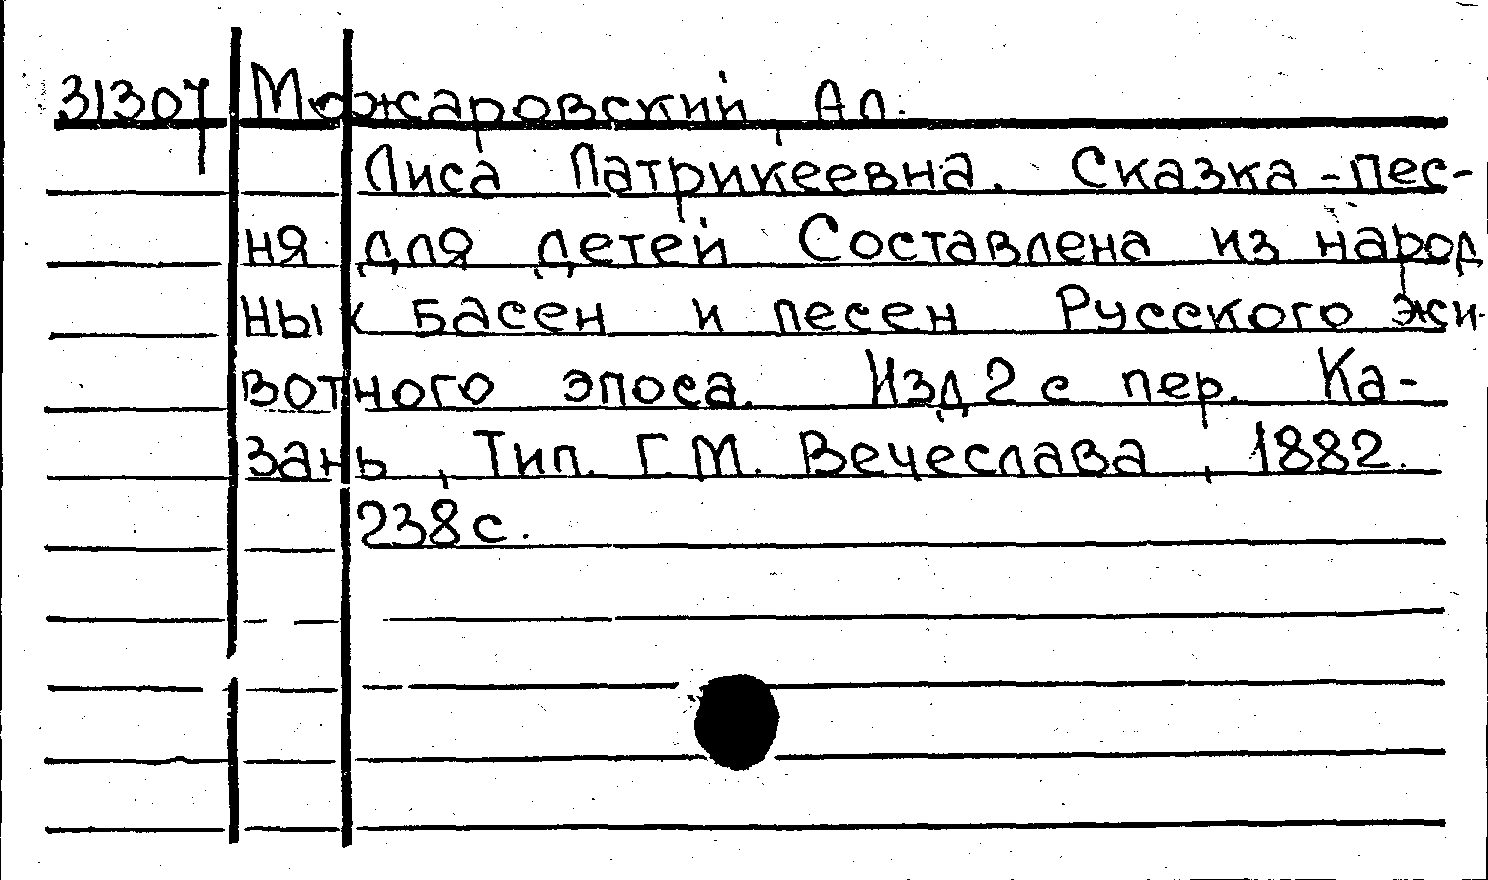 31307 Можаровский, Ал.
Лиса Патрикеевна. Сказка-пес-
ня для детей Составлена из народ
ных басен и песен Русского жи-
вотного эпоса. Изд 2 с пер. Ка-
зань, Тип. Г. М. Вечеслава, 1882.
238 с.